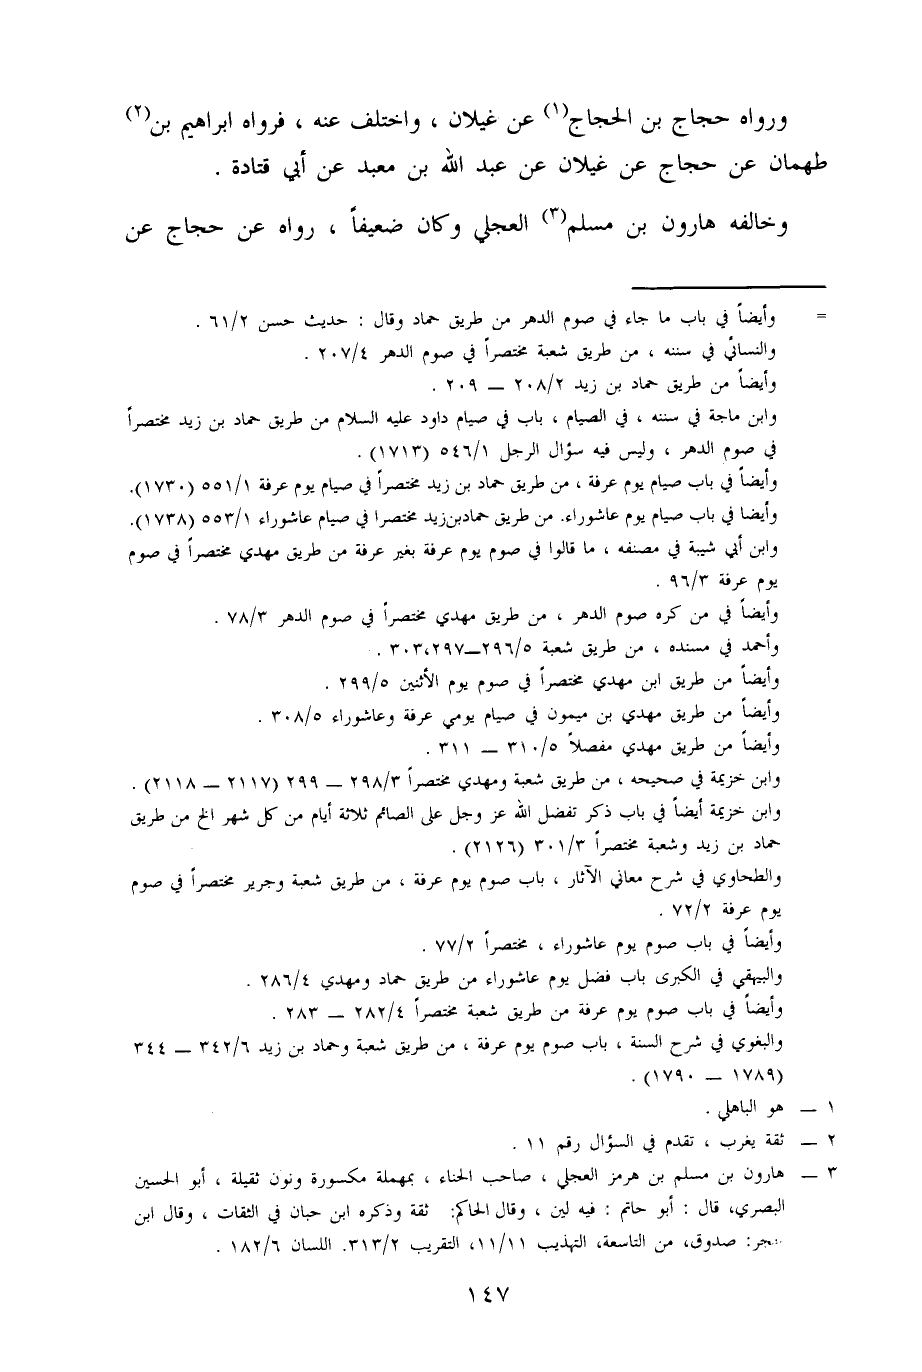 ورواه حجاج بن الحجاج(١) عن غيلان ، واختلف عنه ، فرواه ابراهيم بن(٢)
طهمان عن حجاج عن غيلان عن عبد الله بن معبد عن أبي قتادة .
وخالفه هارون بن مسلم(٣) العجلي وكان ضعيفاً ، رواه عن حجاج عن
= وأيضاً في باب ما جاء في صوم الدهر من طريق حماد وقال : حديث حسن ٦١/٢ .
والنسائي في سننه ، من طريق شعبة مختصراً في صوم الدهر ٢٠٧/٤ .
وأيضاً من طريق حماد بن زيد ٢٠٨/٢ ــ ٢٠٩ .
وابن ماجة في سننه ، في الصيام ، باب في صيام داود عليه السلام من طريق حماد بن زيد مختصراً
في صوم الدهر ، وليس فيه سؤال الرجل ٥٤٦/١ (١٧١٣) .
وأيضاً في باب صيام يوم عرفة ، من طريق حماد بن زيد مختصراً في صيام يوم عرفة ٥٥١/١ (١٧٣٠).
وأيضا في باب صيام يوم عاشوراء. من طريق حمادبن‌زيد مختصرا في صيام عاشوراء ٥٥٣/١ (١٧٣٨).
وابن أبي شيبة في مصنفه ، ما قالوا في صوم يوم عرفة بغير عرفة من طريق مهدي مختصراً في صوم
يوم عرفة ٩٦/٣ .
وأيضاً في من كره صوم الدهر ، من طريق مهدي مختصراً في صوم الدهر ٧٨/٣ .
وأحمد في مسنده ، من طريق شعبة ٢٩٦/٥ــ٣٠٣،٢٩٧ .
وأيضاً من طريق ابن مهدي مختصراً في صوم يوم الأثنين ٢٩٩/٥ .
وأيضاً من طريق مهدي بن ميمون في صيام يومي عرفة وعاشوراء ٣٠٨/٥ .
وأيضاً من طريق مهدي مفصلاً ٣١٠/٥ ــ ٣١١ .
وابن خزيمة في صحيحه ، من طريق شعبة ومهدي مختصراً ٢٩٨/٣ ــ ٢٩٩ (٢١١٧ ــ ٢١١٨) .
وابن خزيمة أيضاً في باب ذكر تفضل الله عز وجل على الصائم ثلاثة أيام من كل شهر الخ من طريق
حماد بن زيد وشعبة مختصراً ٣٠١/٣ (٢١٢٦) .
والطحاوي في شرح معاني الآثار ، باب صوم يوم عرفة ، من طريق شعبة وجرير مختصراً في صوم
يوم عرفة ٧٢/٢ .
وأيضاً في باب صوم يوم عاشوراء ، مختصراً ٧٧/٢ .
والبيهقي في الكبرى باب فضل يوم عاشوراء من طريق حماد ومهدي ٢٨٦/٤ .
وأيضاً في باب صوم يوم عرفة من طريق شعبة مختصراً ٢٨٢/٤ ــ ٢٨٣ .
والبغوي في شرح السنة ، باب صوم يوم عرفة ، من طريق شعبة وحماد بن زيد ٣٤٢/٦ ــ ٣٤٤
(١٧٨٩ ــ ١٧٩٠) .
١ ــ هو الباهلي .
٢ ــ ثقة يغرب ، تقدم في السؤال رقم ١١ .
٣ ــ هارون بن مسلم بن هرمز العجلي ، صاحب الحناء ، بمهملة مكسورة ونون ثقيلة ، أبو الحسين
البصري، قال : أبو حاتم : فيه لين ، وقال الحاكم: ثقة وذكره ابن حبان في الثقات ، وقال ابن
حجر: صدوق، من التاسعة، التهذيب ١١/١١، التقريب ٣١٣/٢. اللسان ١٨٢/٦ .
١٤٧